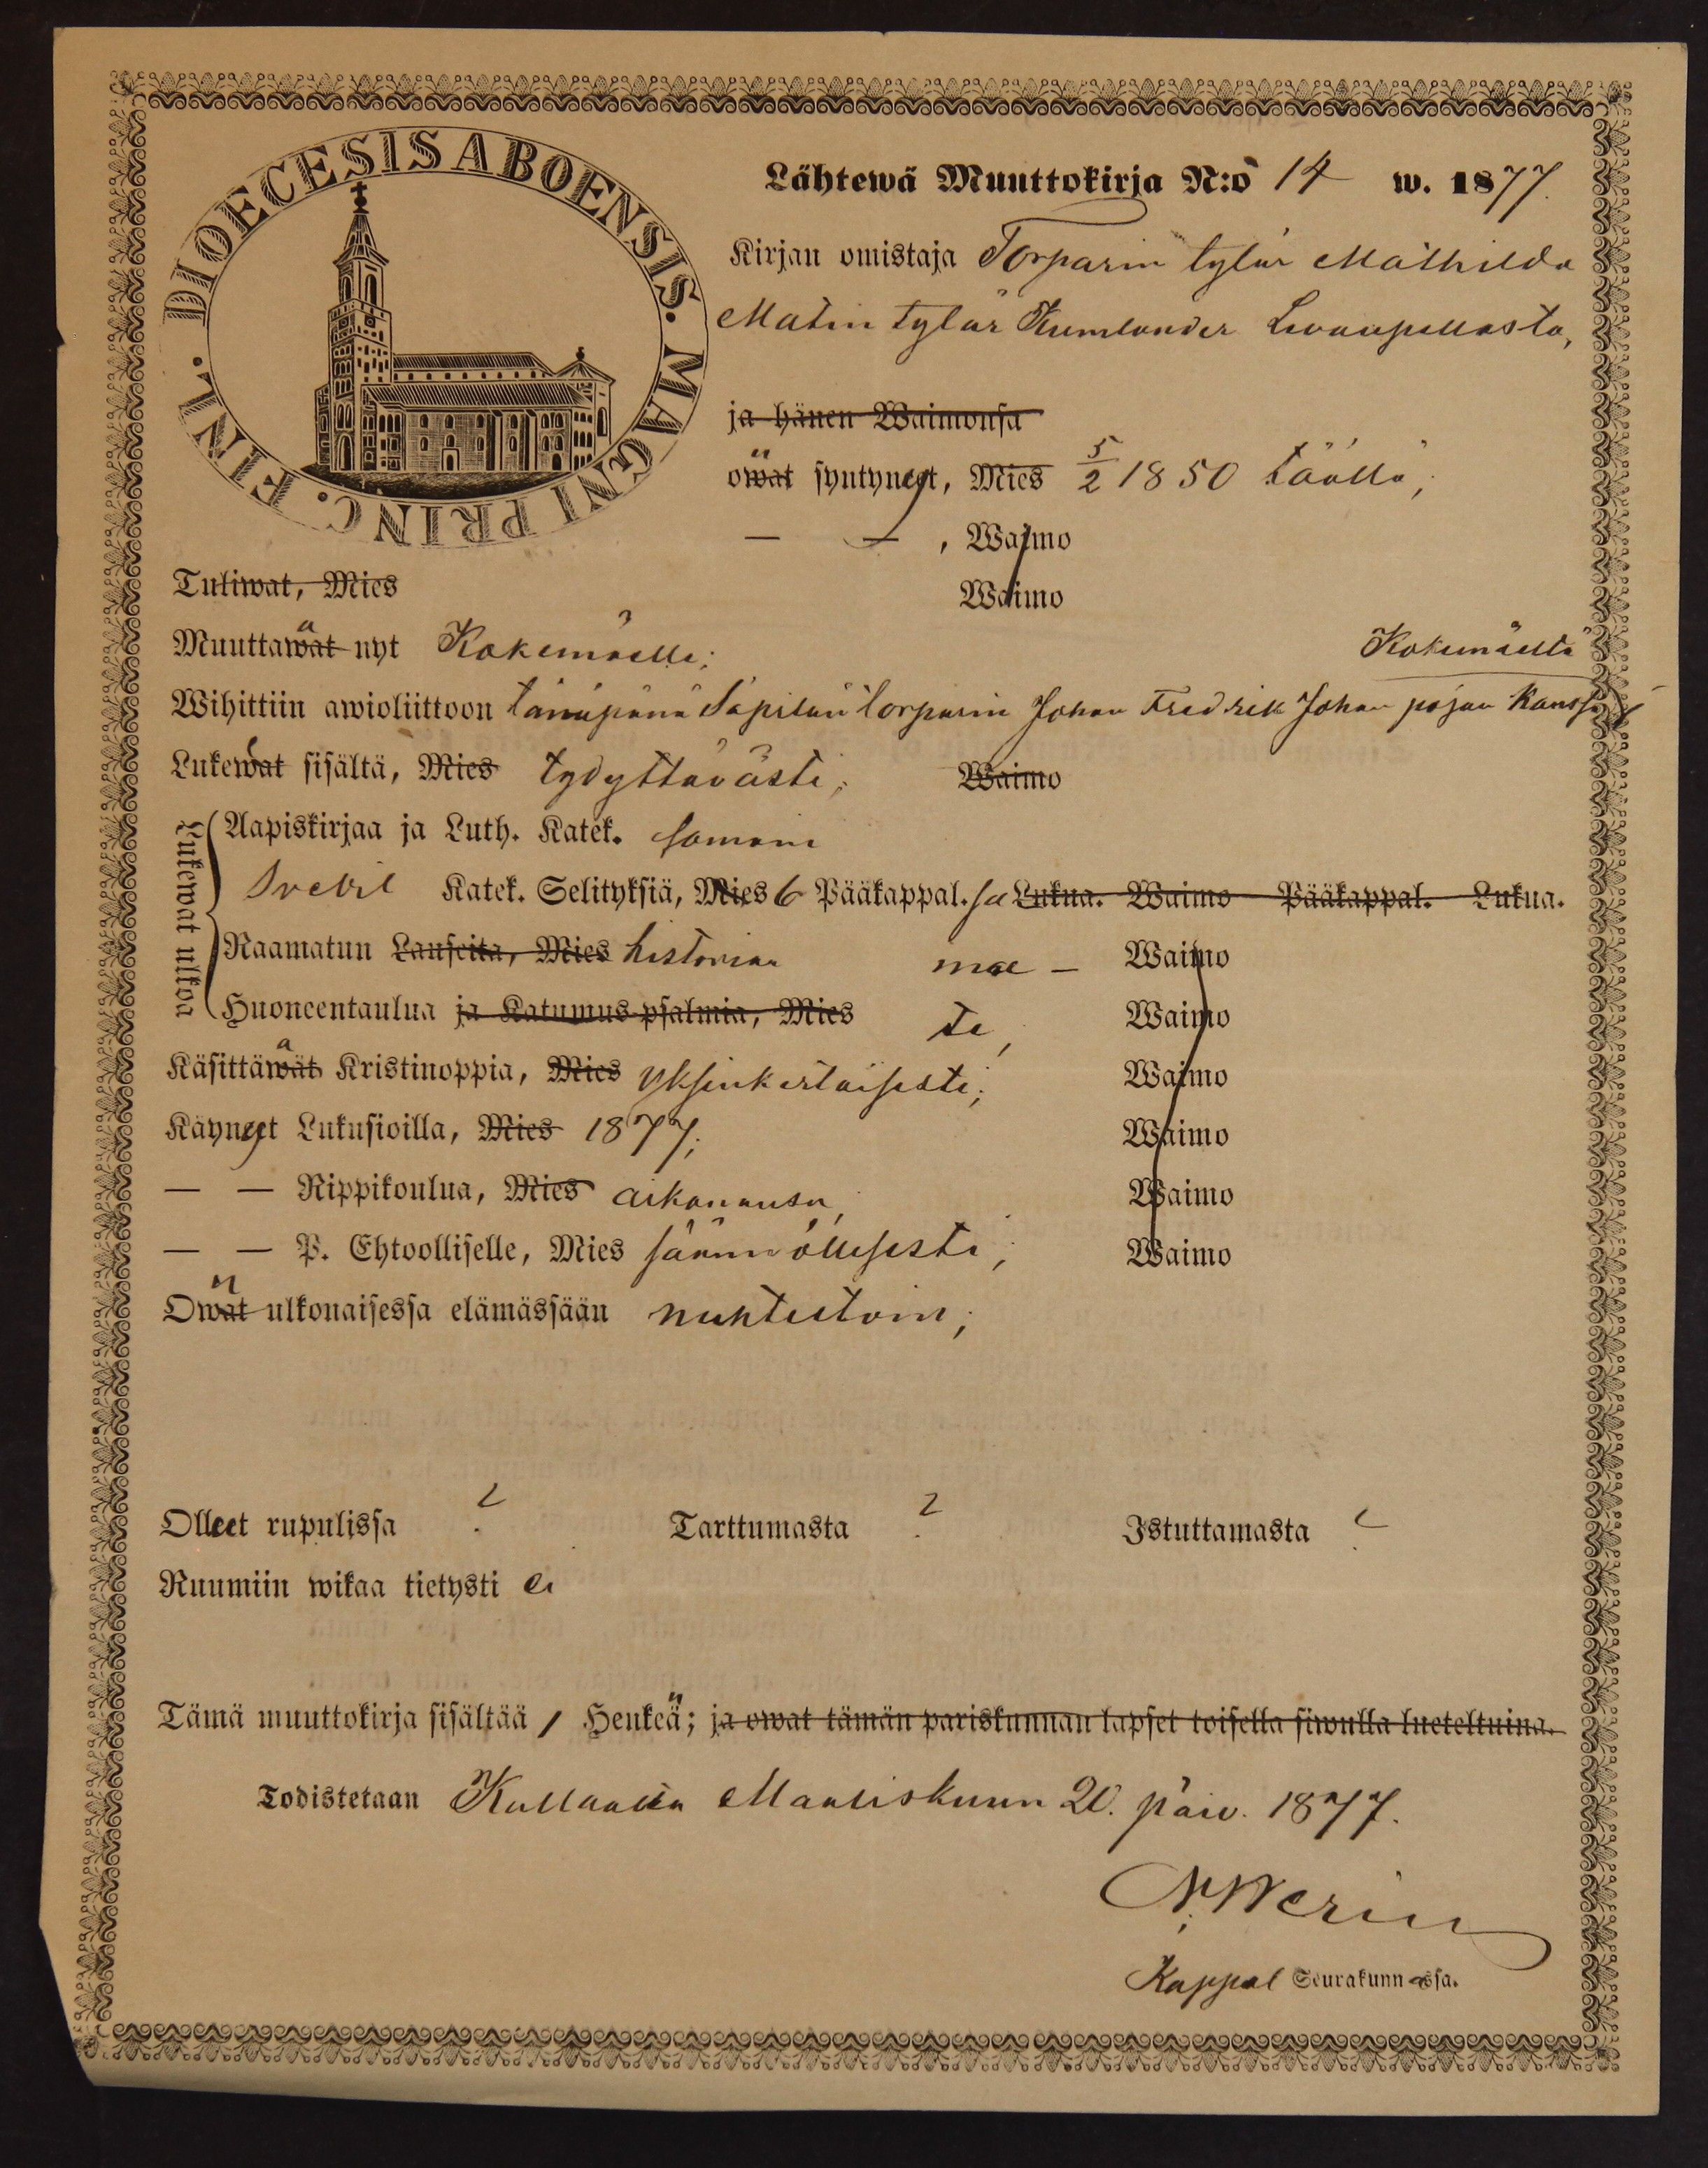 DIOECESIS ABOENSIS. MAGNI PRINC. FINL.
Lähtewä Muuttokirja N:o 14 w. 1877.
Kirjan omistaja Torparin tytär Mathilda
Matin tytär Kumlander Levanpellasta,
ja hänen Waimonsa
owat syntynyt, Mies 5/2 1850 täällä;
— — , Waimo
Tuliwat, Mies Waimo
Muuttawat nyt Kokemäelle; Kokemäeltä
Wihittiin awioliittoon tänäpänä Säpilän torparin Johan Fredrik Johan pojan kanssa
Lukewat sisältä, Mies tydyttävästi; Waimo
Lukewat ulkoa
Aapiskirjaa ja Luth. Katek. samoin
Svebil Katek. Selityksiä, Mies 6 Pääkappal. ja Lukua. Waimo Pääkappal. Lukua.
Raamatun Lauseita, Mies historiaa Waimo
Huoneentaulua ja Katumus-psalmia, Mies Waimo
Käsittäwät Kristinoppia, Mies yksinkertaisesti; Waimo
Käynyt Lukusioilla, Mies 1877; Waimo
— — Rippikoulua, Mies aikanansa, Waimo
— — P. Ehtoolliselle, Mies säännöllisesti; Waimo
Owat ulkonaisessa elämässään nuhtetoin;
Olleet rupulissa ? Tarttumasta ? Istuttamasta ?
Ruumiin wikaa tietysti ei
Tämä muuttokirja sisältää 1 Henkeä; ja owat tämän pariskunnan lapset toisella siwulla lueteltuina.
Todistetaan Kullaalla Maaliskuun 20. päiv. 1877.
Kappal Seurakunnassa.